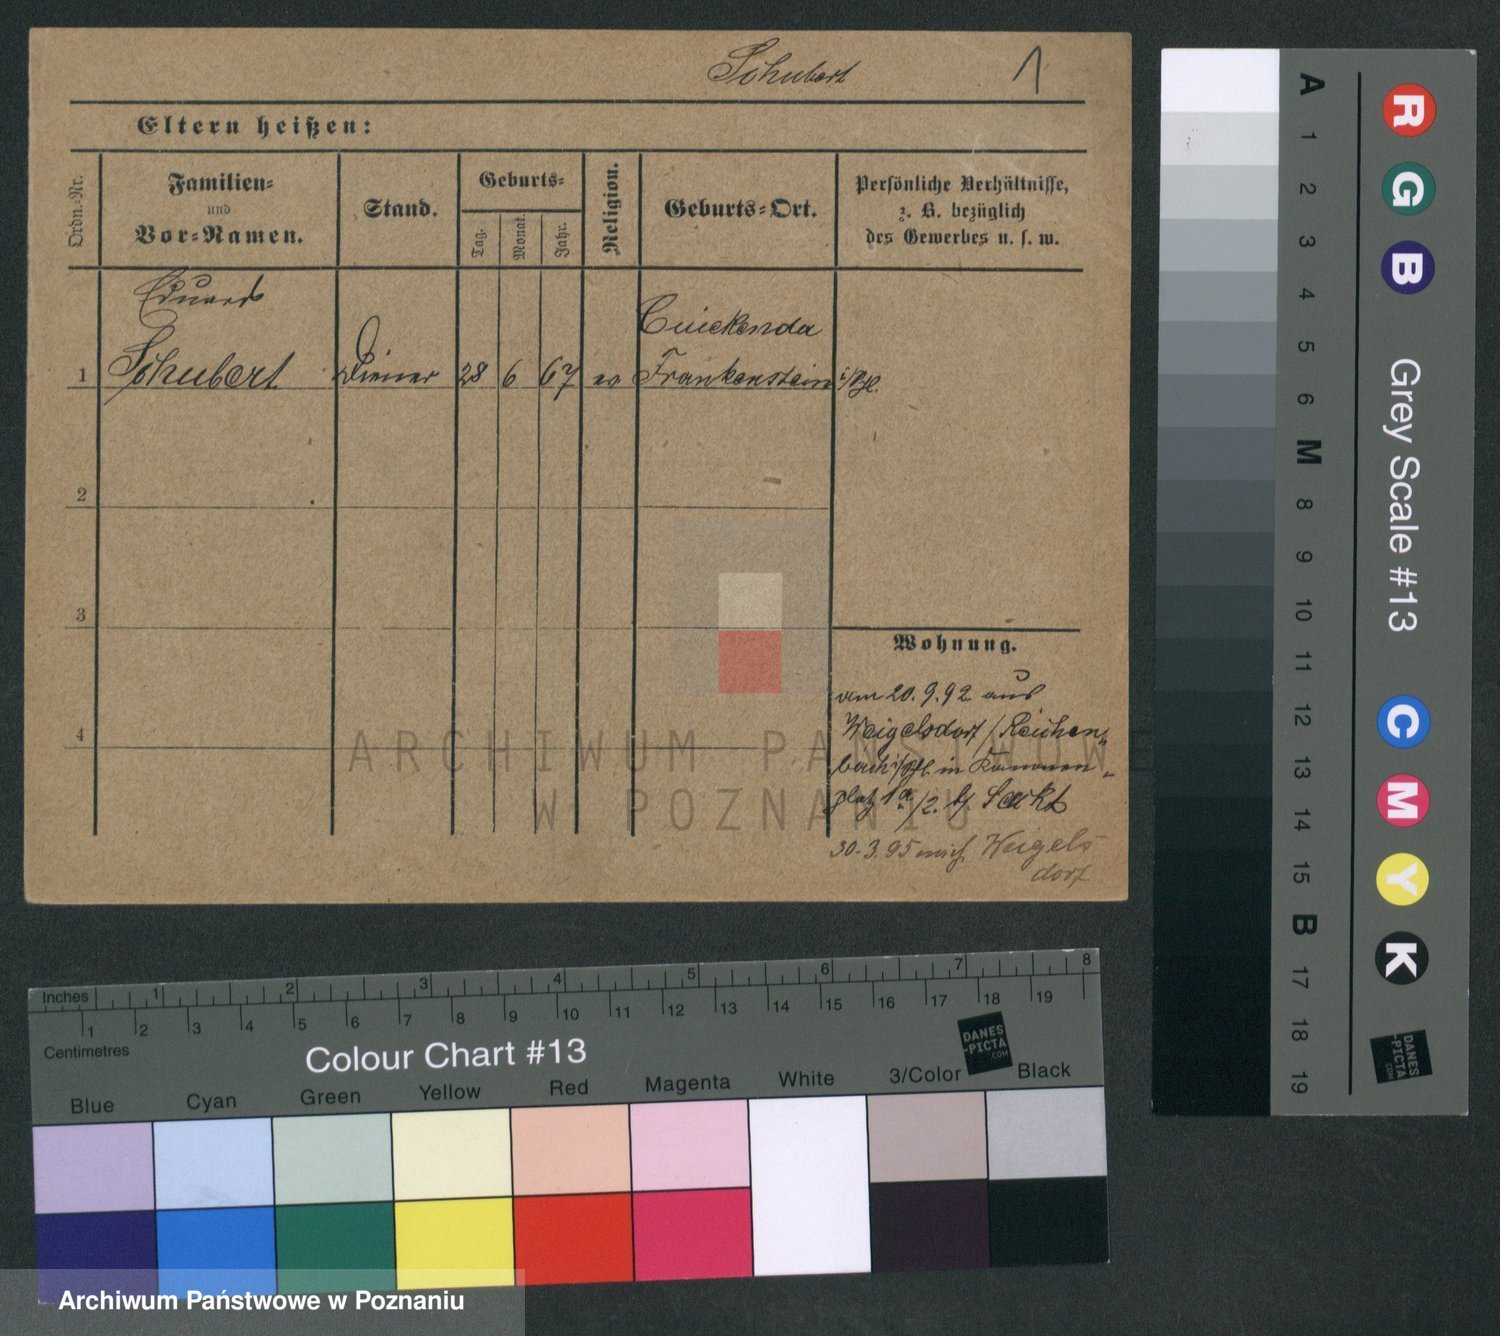 Schubert 1
Eltern heißen:
Ordn.-Nr.
Familien-
und
Vor-Namen.
Stand.
Geburts-
Tag.
Monat.
Jahr.
Religion.
Geburts-Ort.
Persönliche Verhältnisse,
z. B. bezüglich
des Gewerbes u. s. w.
Eduard
1 Schubert Diener 28 6 67 ev Frankenstein i/Schl.
2
3
4
Wohnung.
am 20.9.92 aus
Weigelsdorf / Reichen„
bach i/Schl. in Kanonen„
platz 1a /2. b/
30.3.95 nach Weigels
dorf
ARCHIWUM PAŃSTWOWE
W POZNANIU
A 1 2 3 4 5 6 M 8 9 10 11 12 13 14 15 B 17 18 19
R G B
Grey Scale #13
C M Y K
DANES
-PICTA
.COM
Inches 1 2 3 4 5 6 7 8
1 2 3 4 5 6 7 8 9 10 11 12 13 14 15 16 17 18 19
Centimetres
Colour Chart #13
DANES
-PICTA
.COM
Blue Cyan Green Yellow Red Magenta White 3/Color Black
Archiwum Państwowe w Poznaniu